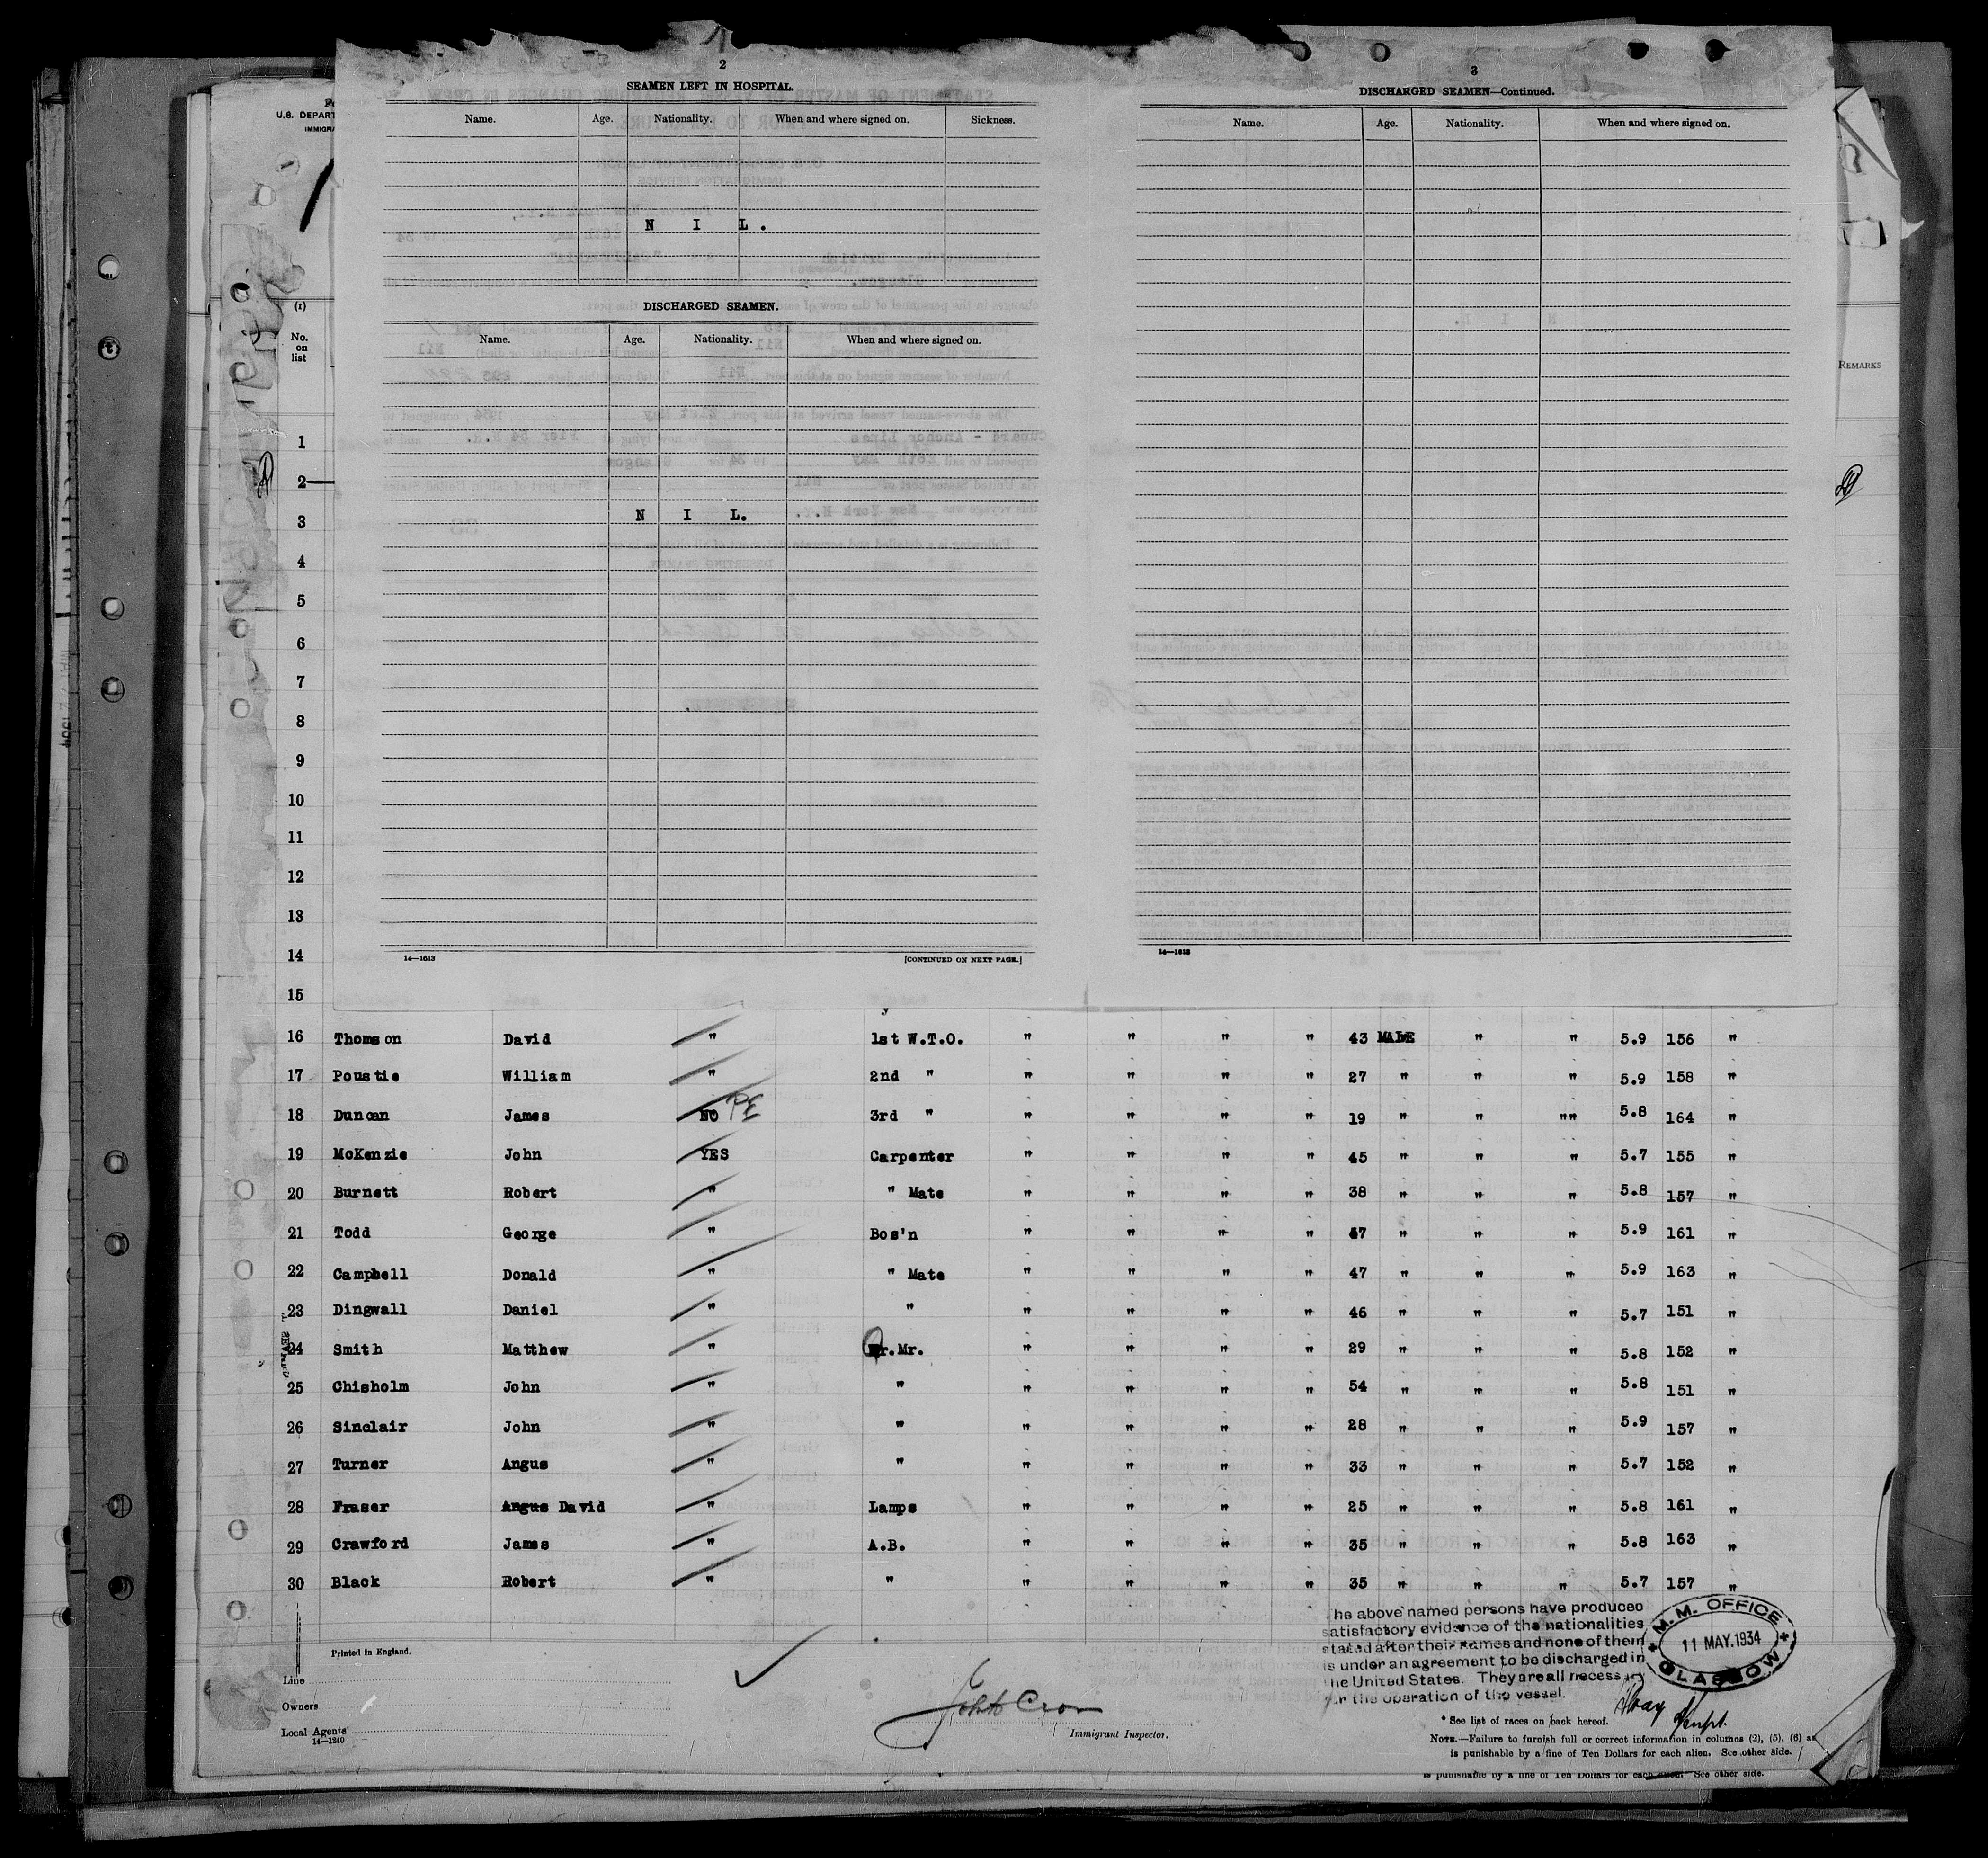 2
SEAMEN LEFT IN HOSPITAL.
Name. Age. Nationality. When and where signed on. Sickness.
N I L.
DISCHARGED SEAMEN.
Name. Age. Nationality. When and where signed on.
N I L. . .
14—1613 [CONTINUED ON NEXT PAGE.]
3
DISCHARGED SEAMEN—Continued.
Name. Age. Nationality. When and where signed on.
14—1613
U.S. DEPART
IMMIGRA
(1)
No.
on
list
REMARKS
1
2
3
4
5
6
7
8
9
10
11
12
13
14
15
16 Thomson David " 1st W.T.O. " " " " 43 MALE " " 5.9 156 "
17 Poustie William " 2nd " " " " " 27 " " " 5.9 158 "
18 Duncan James NO PE 3rd " " " " " 19 " " "" 5.8 164 "
19 McKenzie John YES Carpenter " " " " 45 " " " 5.7 155 "
20 Burnett Robert " " Mate " " " " 38 " " " 5.8 157 "
21 Todd George " Bos'n " " " " 47 " " " 5.9 161 "
22 Campbell Donald " " Mate " " " " 47 " " " 5.9 163 "
23 Dingwall Daniel " " " " " " 46 " " " 5.7 151 "
24 Smith Matthew " Qr.Mr. " " " " 29 " " " 5.8 152 "
25 Chisholm John " " " " " " 54 " " " 5.8 151 "
26 Sinclair John " " " " " " 28 " " " 5.9 157 "
27 Turner Angus " " " " " " 33 " " " 5.7 152 "
28 Fraser Angus David " Lamps " " " " 25 " " " 5.8 161 "
29 Crawford James " A.B. " " " " 35 " " " 5.8 163 "
30 Black Robert " " " " " " 35 " " " 5.7 157 "
he above named persons have produced
satisfactory evidence of the nationalities
stated after their names and none of them
is under an agreement to be discharged in
he United States. They are all necess
r the operation of the vessel.
M.M. OFFICE
11 MAY.1934
GLASGOW
Printed in England.
Line
Owners
Local Agents
14—1240
John Cron
Immigrant Inspector.
* See list of races on back hereof.
NOTE.—Failure to furnish full or correct information in columns (2), (5), (6) a
is punishable by a fine of Ten Dollars for each alien. See other side.
is punishable by a fine of Ten Dollars for each alien. See other side.